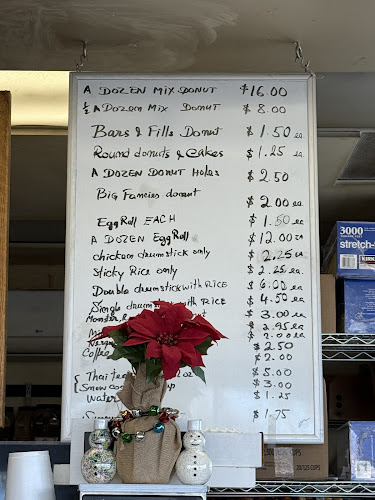 A DOZEN MIX DONUT $16.00
½ A DOZEN MIX DONUT $8.00
Bars & Fills Donut $1.50 ea.
Round donuts & Cakes $1.25 ea.
A DOZEN DONUT HOLES $2.50
Big Fancies donut $2.00 ea.
Egg Roll EACH $1.50 ea.
A DOZEN Egg Roll $12.00
chicken drumstick only $2.25 ea
Sticky Rice only $2.25 ea.
Double drumstick with RICE $6.00 ea.
Single drumstick with RICE $4.50 ea.
$3.00 ea
$2.95 ea
$2.00 ea
$2.50
Coffee $2.00
Thai tea $5.00
$3.00
Water $1.25
$1.75
3000
stretch